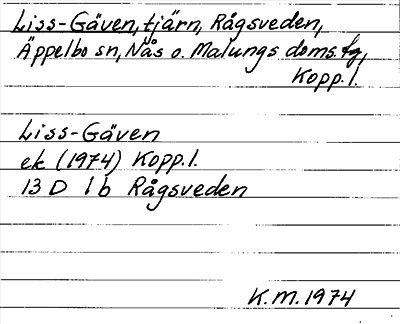 Liss-Gäven, tjärn, Rågsveden,
Äppelbo sn, Nås o. Malungs doms.fg,
Kopp.l.
Liss-Gäven
ek (1974) Kopp.l.
13 D 1b Rågsveden
K.M.1974